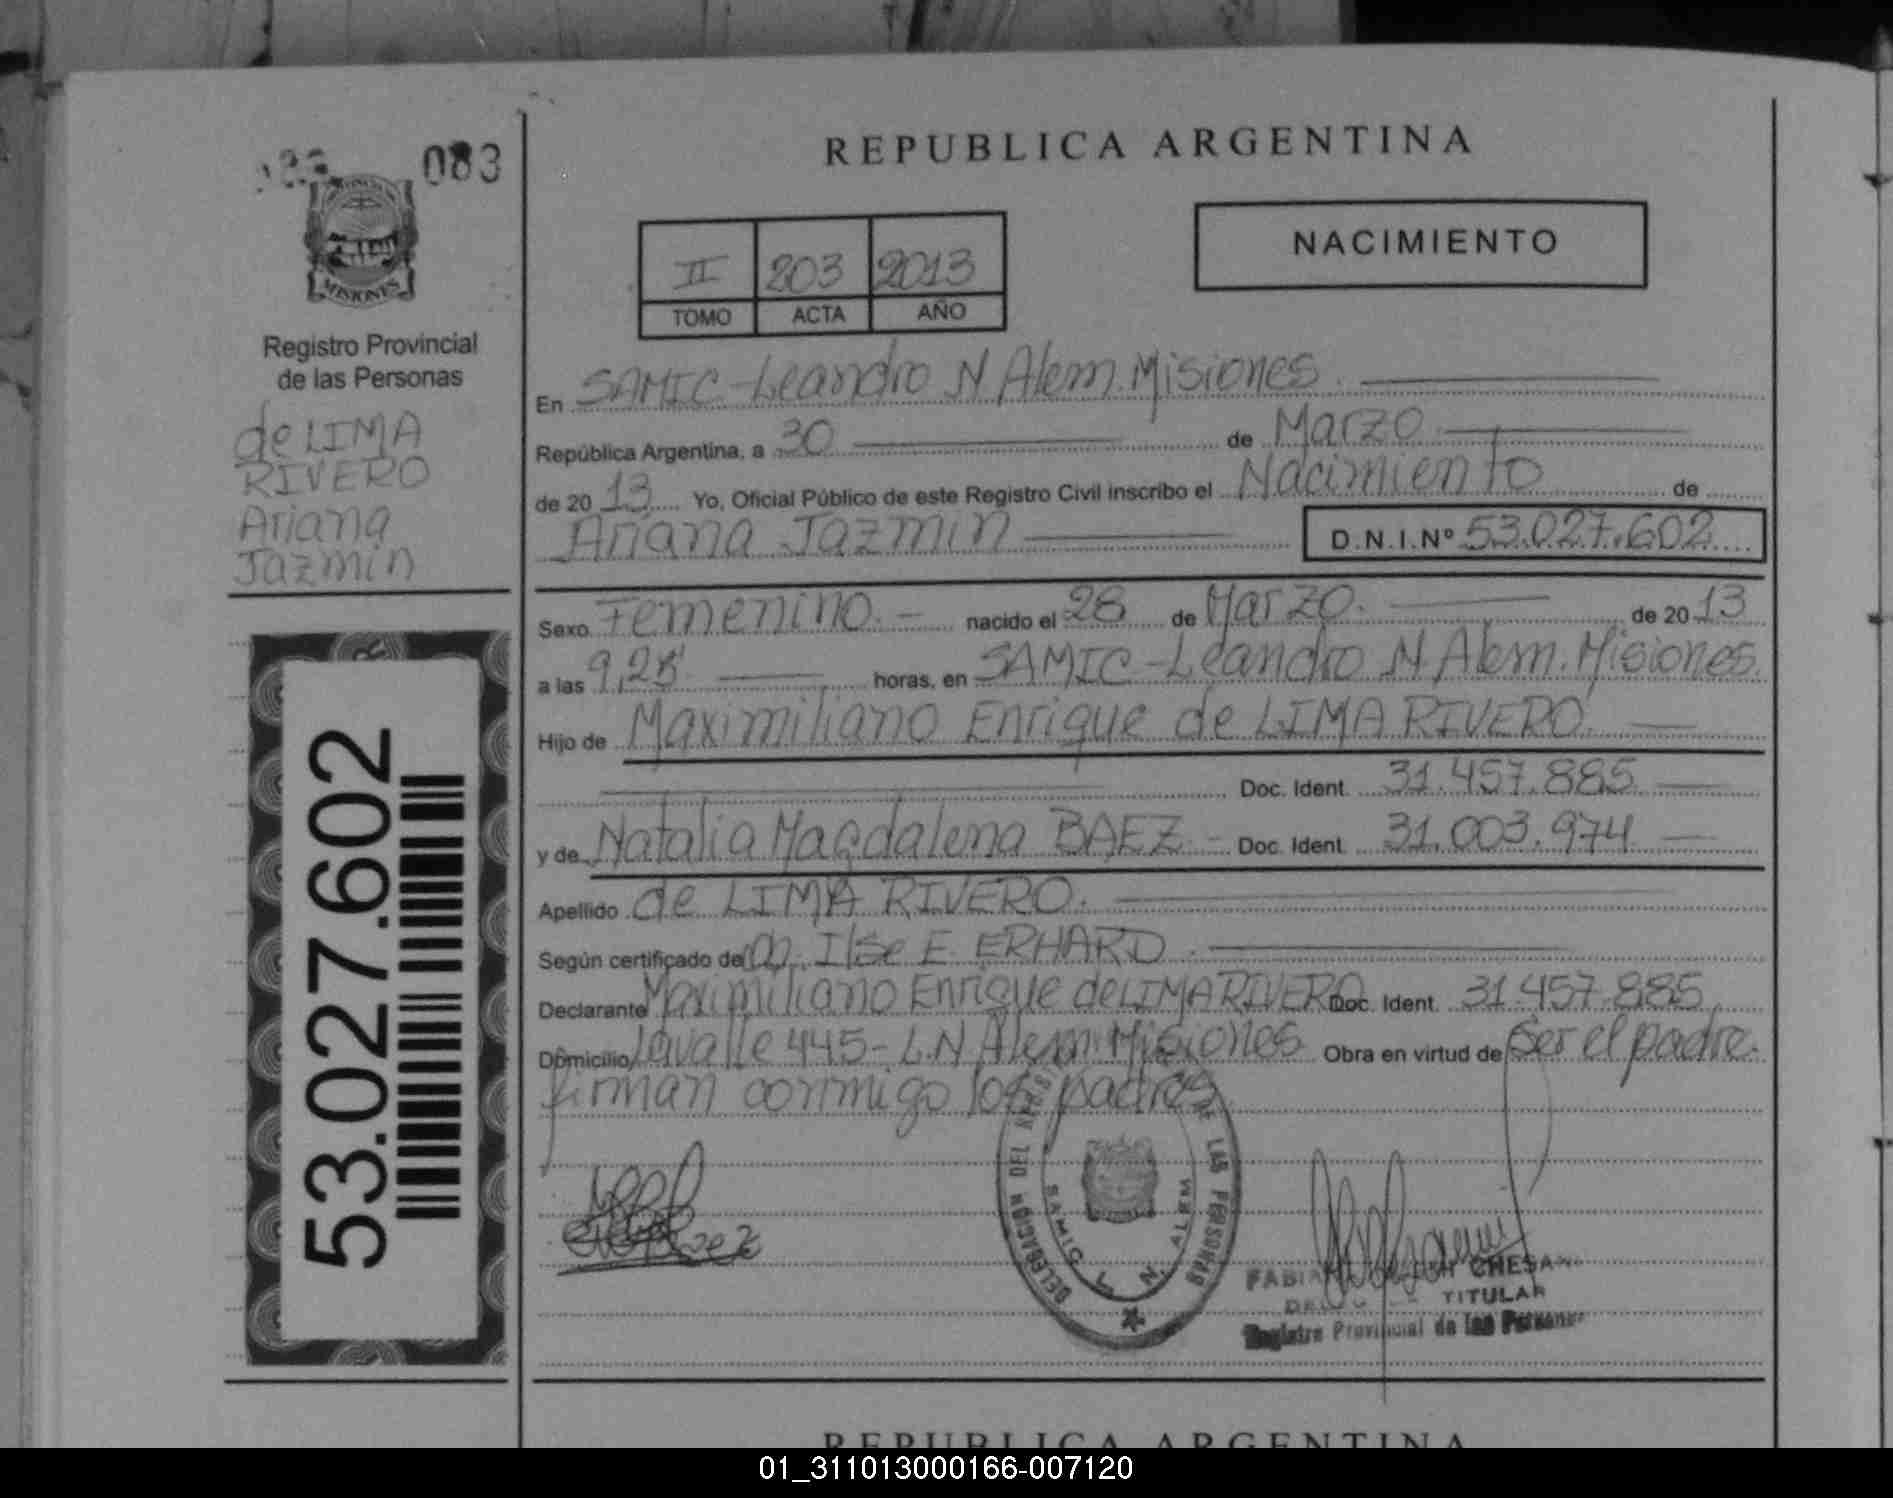 083
MISIONES
Registro Provincial
de las Personas
de LIMA
RIVERO
Ariana
Jazmin
53.027.602
REPUBLICA ARGENTINA
II 203 2013
TOMO ACTA AÑO
NACIMIENTO
En SAMIC-Leandro N Alem. Misiones.
República Argentina, a 30 de Marzo
de 2013 Yo, Oficial Público de este Registro Civil inscribo el Nacimiento de
Ariana Jazmin D.N.I.Nº 53.027.602
Sexo Femenino.- nacido el 28 de Marzo. de 2013
a las horas, en SAMIC-Leandro N Alem. Misiones.
Hijo de Maximiliano Enrique de LIMA RIVERO
Doc. Ident. 31.457.885
y de Natalia Magdalena BAEZ - Doc. Ident. 31.003.974
Apellido de LIMA RIVERO.
Según certificado de Ilse E. ERHARD.
Declarante Maximiliano Enrique de LIMA RIVERO Doc. Ident. 31.457.885
Domicilio Lavalle 445- L.N Alem. Misiones Obra en virtud de Ser el padre.
firman conmigo los padres
DELEGACION DEL LAS PERSONAS
SAMIC L. N. ALEM
TITULAR
Registro Provincial de las Personas
REPUBLICA ARGENTINA
01_311013000166-007120